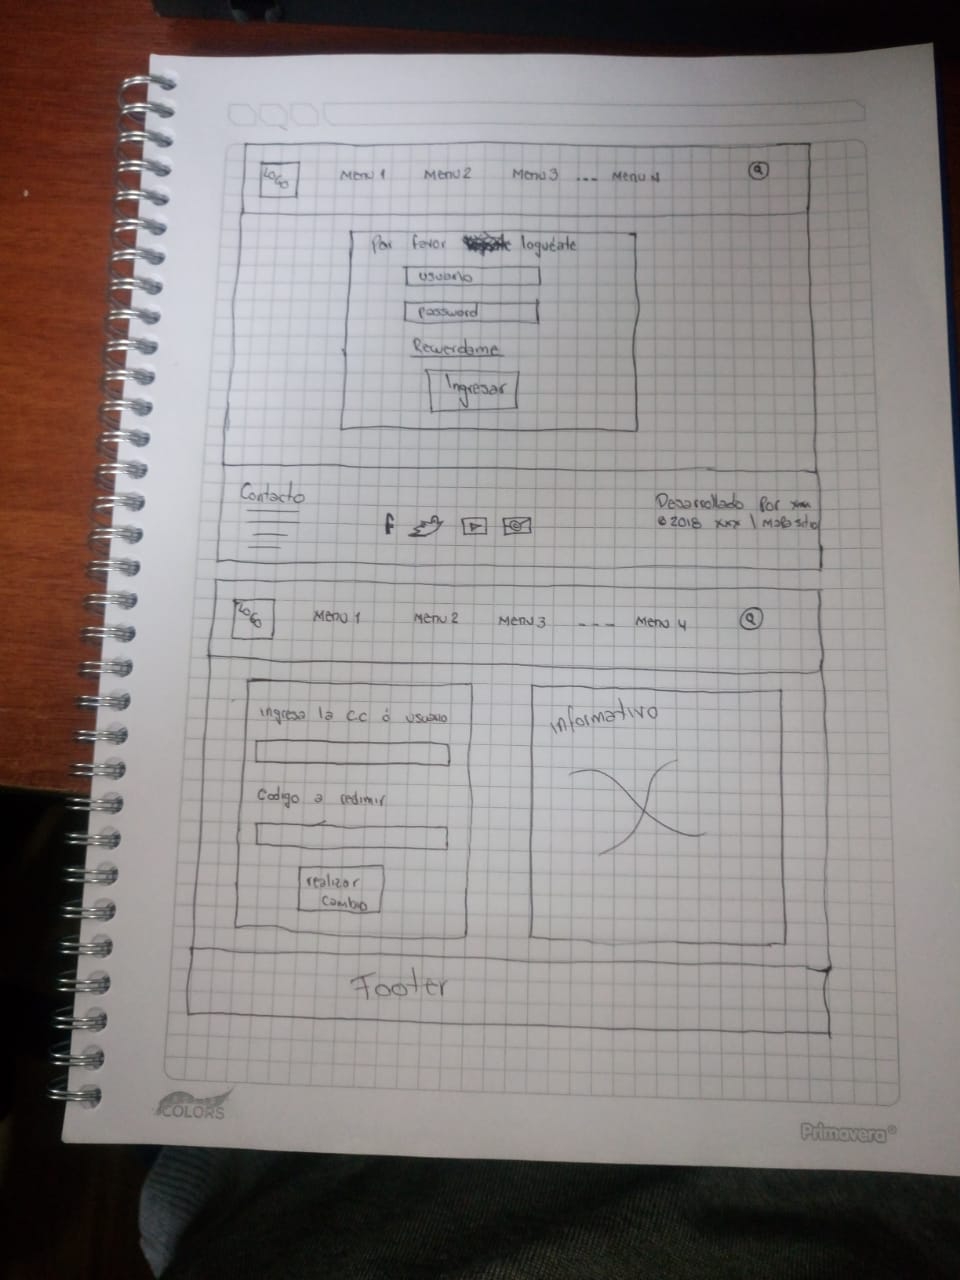 LOGO Menu 1 Menu 2 Menu 3 --- Menu 4
Por favor loguéate
usuario
password
Recuerdame
Ingresar
Contacto
f
Desarrollado Por xxx
© 2018 xxx | Mapa sitio
LOGO Menu 1 Menu 2 Menu 3 --- Menu 4
ingresa la CC ó usuario
Codigo a redimir
realizar
cambio
informativo
Footer
COLORS
Primavera®